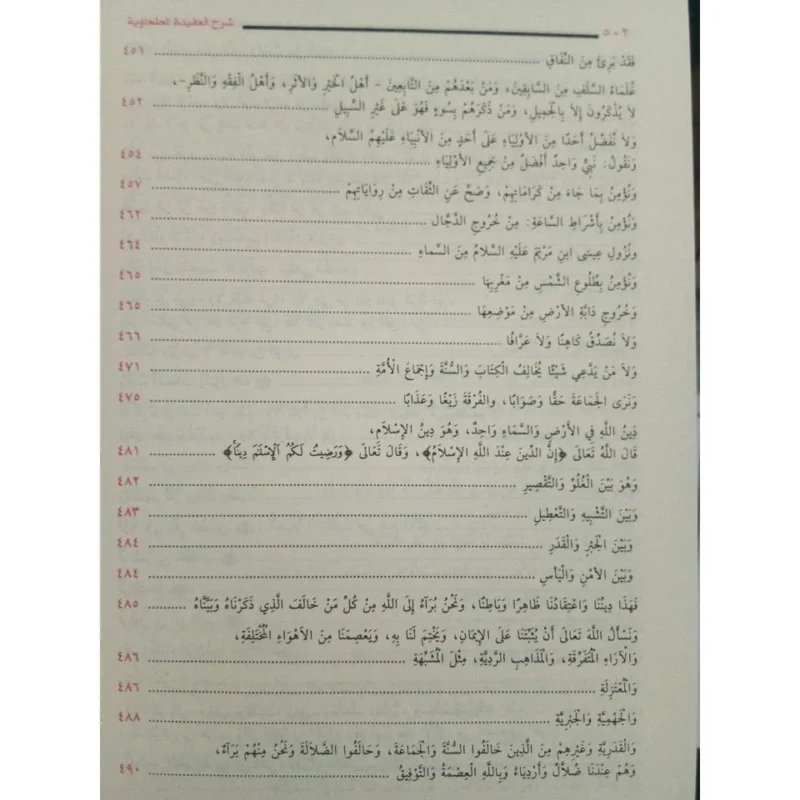 ٥٠٢ شرح العقيدة الطحاوية
فَقَدْ بَرِئَ مِنَ النِّفَاقِ ........ ٤٥١
عُلَمَاءُ السَّلَفِ مِنَ السَّابِقِينَ، وَمَنْ بَعْدَهُمْ مِنَ التَّابِعِينَ - أَهْلُ الْخَبَرِ وَالأَثَرِ، وَأَهْلُ الْفِقْهِ وَالنَّظَرِ -،
لاَ يُذْكَرُونَ إِلاَّ بِالْجَمِيلِ، وَمَنْ ذَكَرَهُمْ بِسُوءٍ فَهُوَ عَلَى غَيْرِ السَّبِيلِ ........ ٤٥٢
وَلاَ نُفَضِّلُ أَحَدًا مِنَ الأَوْلِيَاءِ عَلَى أَحَدٍ مِنَ الأَنْبِيَاءِ عَلَيْهِمُ السَّلاَم،
وَنَقُولُ: نَبِيٌّ وَاحِدٌ أَفْضَلُ مِنْ جَمِيعِ الأَوْلِيَاءِ ........ ٤٥٤
وَنُؤْمِنُ بِمَا جَاءَ مِنْ كَرَامَاتِهِمْ، وَصَحَّ عَنِ الثِّقَاتِ مِنْ رِوَايَاتِهِمْ ........ ٤٥٧
وَنُؤْمِنُ بِأَشْرَاطِ السَّاعَةِ: مِنْ خُرُوجِ الدَّجَّالِ ........ ٤٦٢
ونُزُولِ عِيسَى ابنِ مَرْيَمَ عَلَيْهِ السَّلاَمُ مِنَ السَّماءِ ........ ٤٦٤
وَنُؤْمِنُ بِطُلُوعِ الشَّمْسِ مِنْ مَغْرِبِهَا ........ ٤٦٥
وَخُرُوجِ دَابَّةِ الأَرْضِ مِنْ مَوْضِعِهَا ........ ٤٦٥
وَلاَ نُصَدِّقُ كَاهِنًا وَلاَ عَرَّافًا ........ ٤٦٦
وَلاَ مَنْ يَدَّعِي شَيْئًا يُخَالِفُ الْكِتَابَ وَالسُّنَّةَ وَإِجْمَاعَ الْأُمَّةِ ........ ٤٧١
وَنَرَى الْجَمَاعَةَ حَقًّا وَصَوَابًا، والفُرْقَةَ زَيْغًا وَعَذَابًا ........ ٤٧٥
دِينُ اللَّهِ فِي الأَرْضِ وَالسَّمَاءِ وَاحِدٌ، وَهُوَ دِينُ الإِسْلاَمِ،
قَالَ اللَّهُ تَعَالَى ﴿إِنَّ الدِّينَ عِنْدَ اللَّهِ الإِسْلاَمُ﴾، وَقَالَ تَعَالَى ﴿وَرَضِيتُ لَكُمُ الْإِسْلَمَ دِينًا﴾ ........ ٤٨١
وَهُوَ بَيْنَ الْغُلُوِّ وَالتَّقْصِيرِ ........ ٤٨٢
وَبَيْنَ التَّشْبِيهِ وَالتَّعْطِيلِ ........ ٤٨٣
وَبَيْنَ الْجَبْرِ وَالْقَدَرِ ........ ٤٨٤
وَبَيْنَ الأَمْنِ وَالْيَأْسِ ........ ٤٨٤
فَهَذَا دِينُنَا وَاعْتِقَادُنَا ظَاهِرًا وَبَاطِنًا، وَنَحْنُ بُرَآءُ إِلَى اللَّهِ مِنْ كُلِّ مَنْ خَالَفَ الَّذِي ذَكَرْنَاهُ وَبَيَّنَّاهُ ........ ٤٨٥
وَنَسْأَلُ اللَّهَ تَعَالَى أَنْ يُثَبِّتَنَا عَلَى الإِيمَانِ، وَيَخْتِمَ لَنَا بِهِ، وَيَعْصِمَنَا مِنَ الأَهْوَاءِ الْمُخْتَلِفَةِ،
وَالْآرَاءِ الْمُتَفَرِّقَةِ، وَالْمَذَاهِبِ الرَّدِيَّةِ، مِثْلَ الْمُشَبِّهَةِ ........ ٤٨٦
وَالْمُعْتَزِلَةِ ........ ٤٨٦
وَالْجَهْمِيَّةِ وَالْجَبْرِيَّةِ ........ ٤٨٨
وَالْقَدَرِيَّةِ وَغَيْرِهِمْ مِنَ الَّذِينَ خَالَفُوا السُّنَّةَ وَالْجَمَاعَةَ، وَحَالَفُوا الضَّلاَلَةَ وَنَحْنُ مِنْهُمْ بَرَآءُ،
وَهُمْ عِنْدَنَا ضُلاَّلٌ وَأَرْدِيَاءُ وَبِاللَّهِ الْعِصْمَةُ وَالتَّوْفِيقُ ........ ٤٩٠